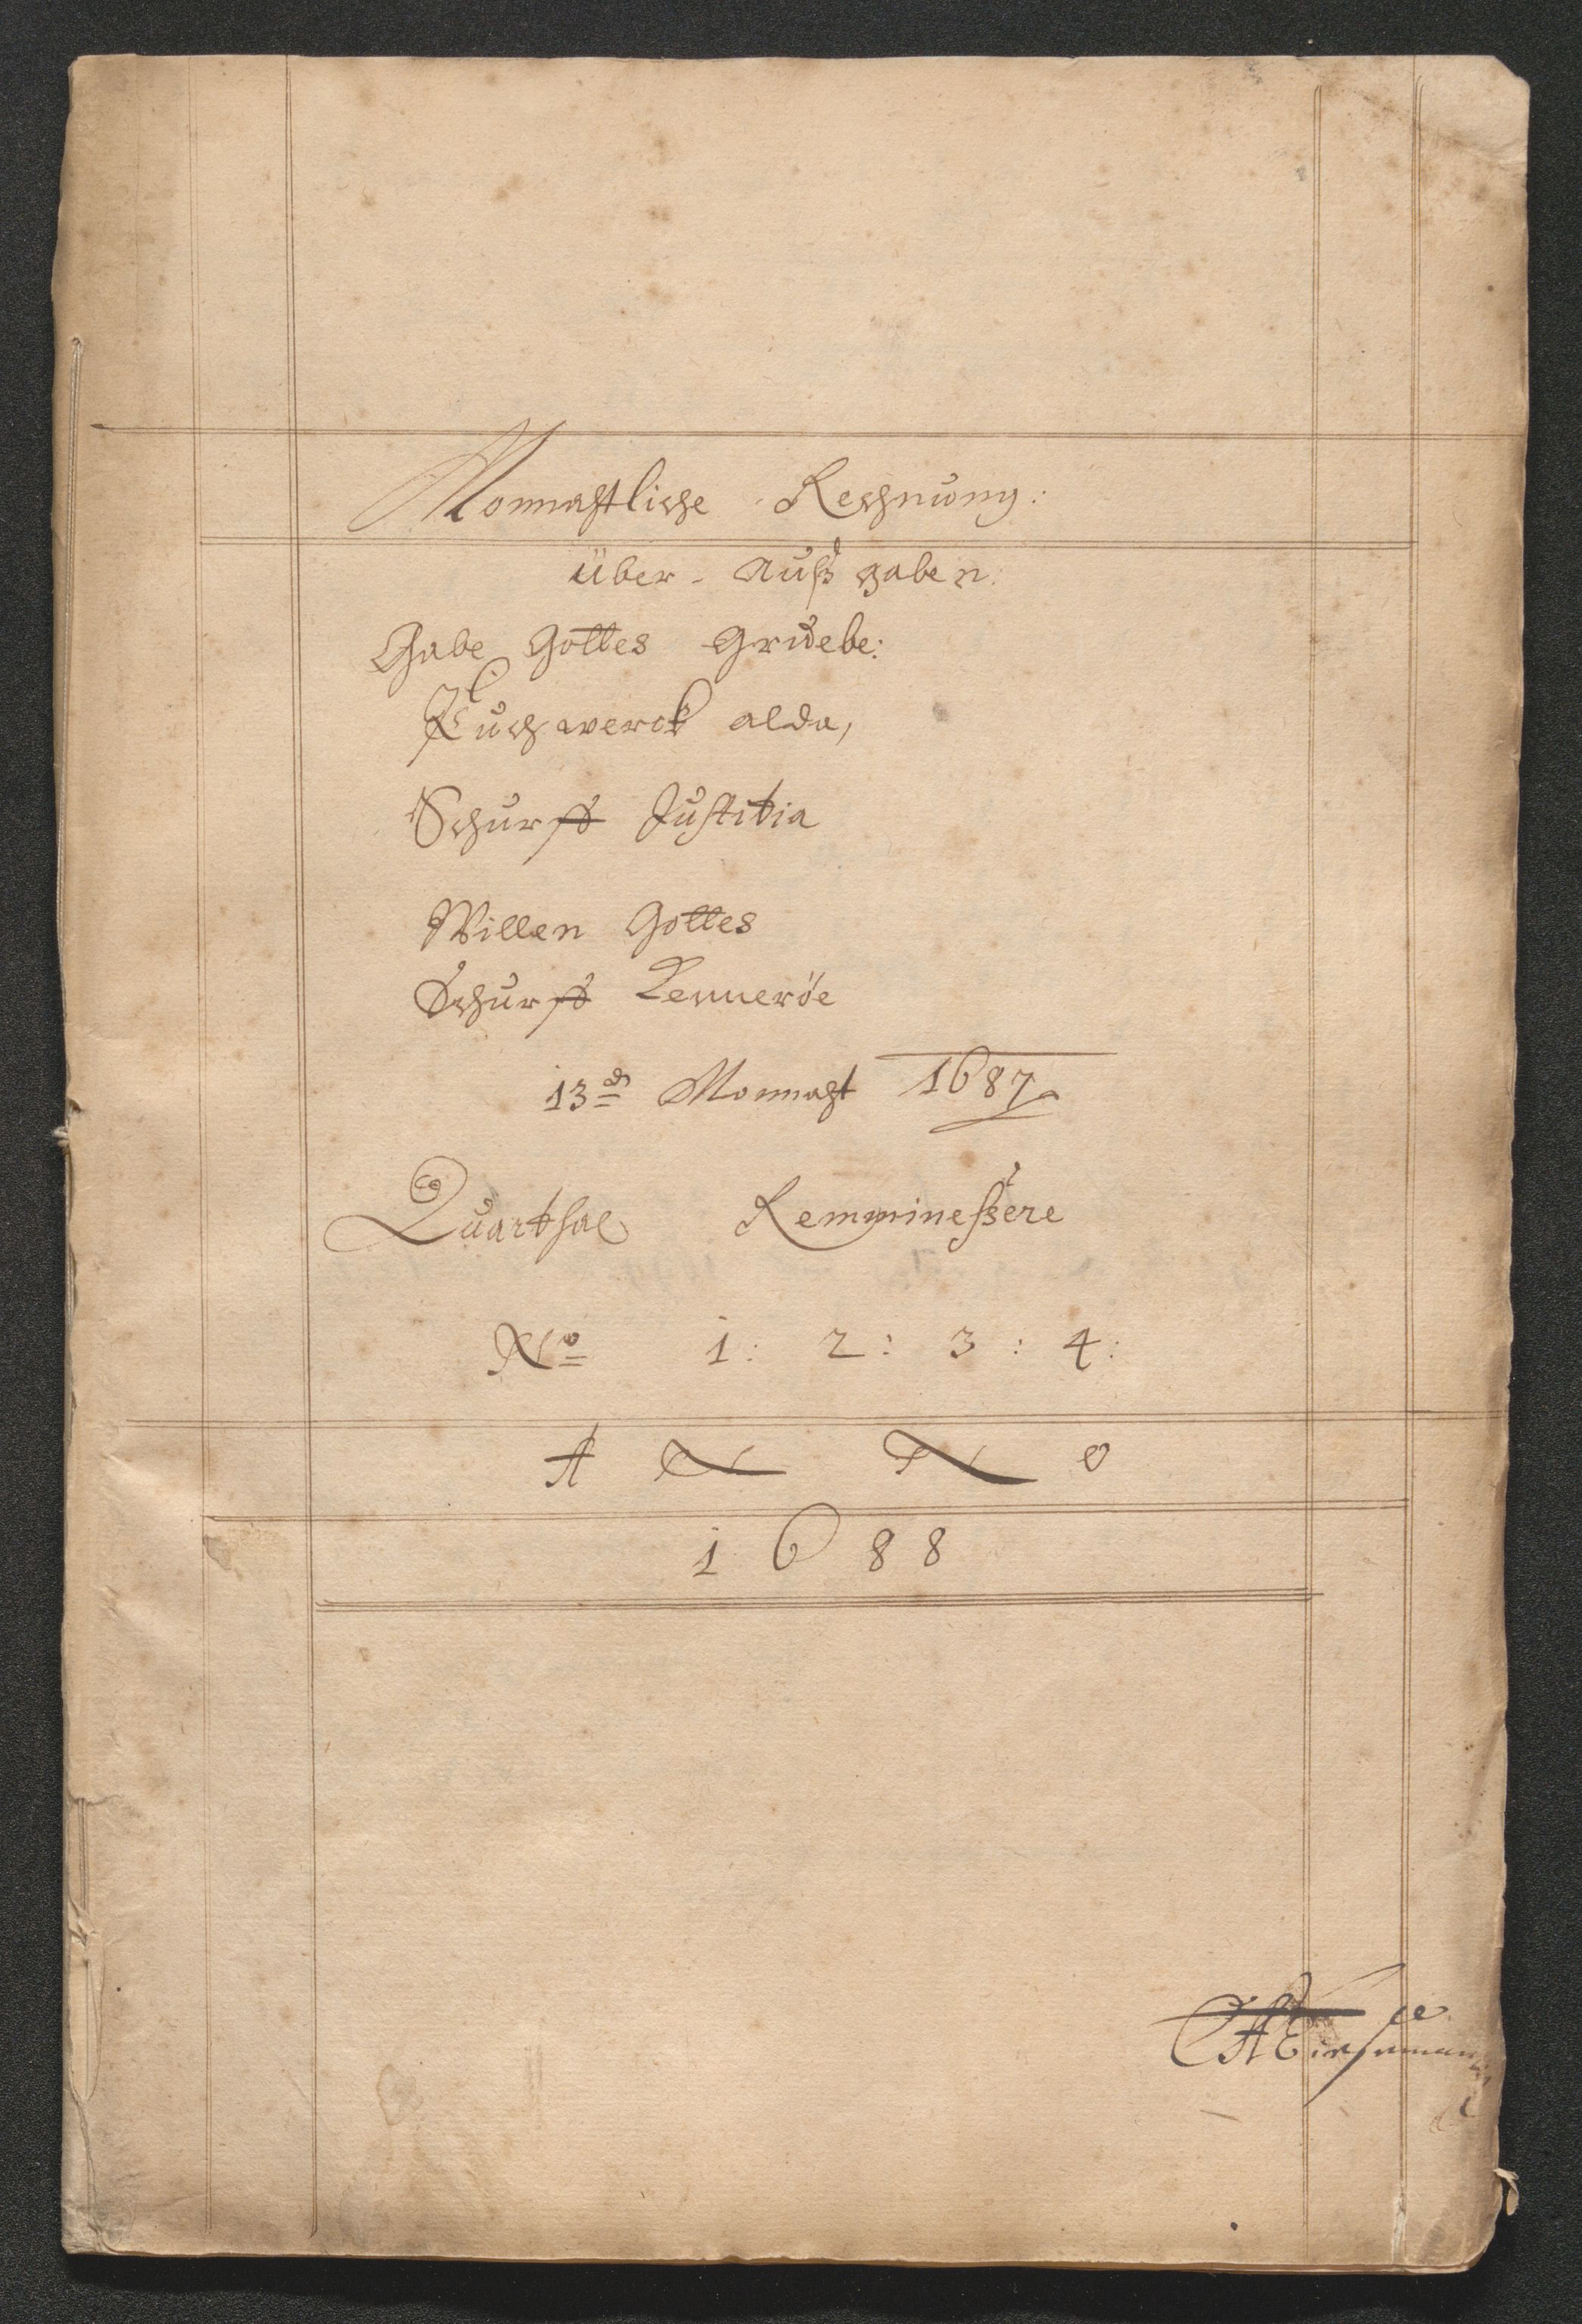 Monnahtliche Rechnung:
über Außgaben:
Gabe Gottes Gruebe:
Puchwerck alda,
Schurff Justitia
Willen Gottes
Schurff Lenneröe
13 Monnaht 1687
Quarthal Remmineßere
No 1: 2: 3: 4:
A N N o
1688